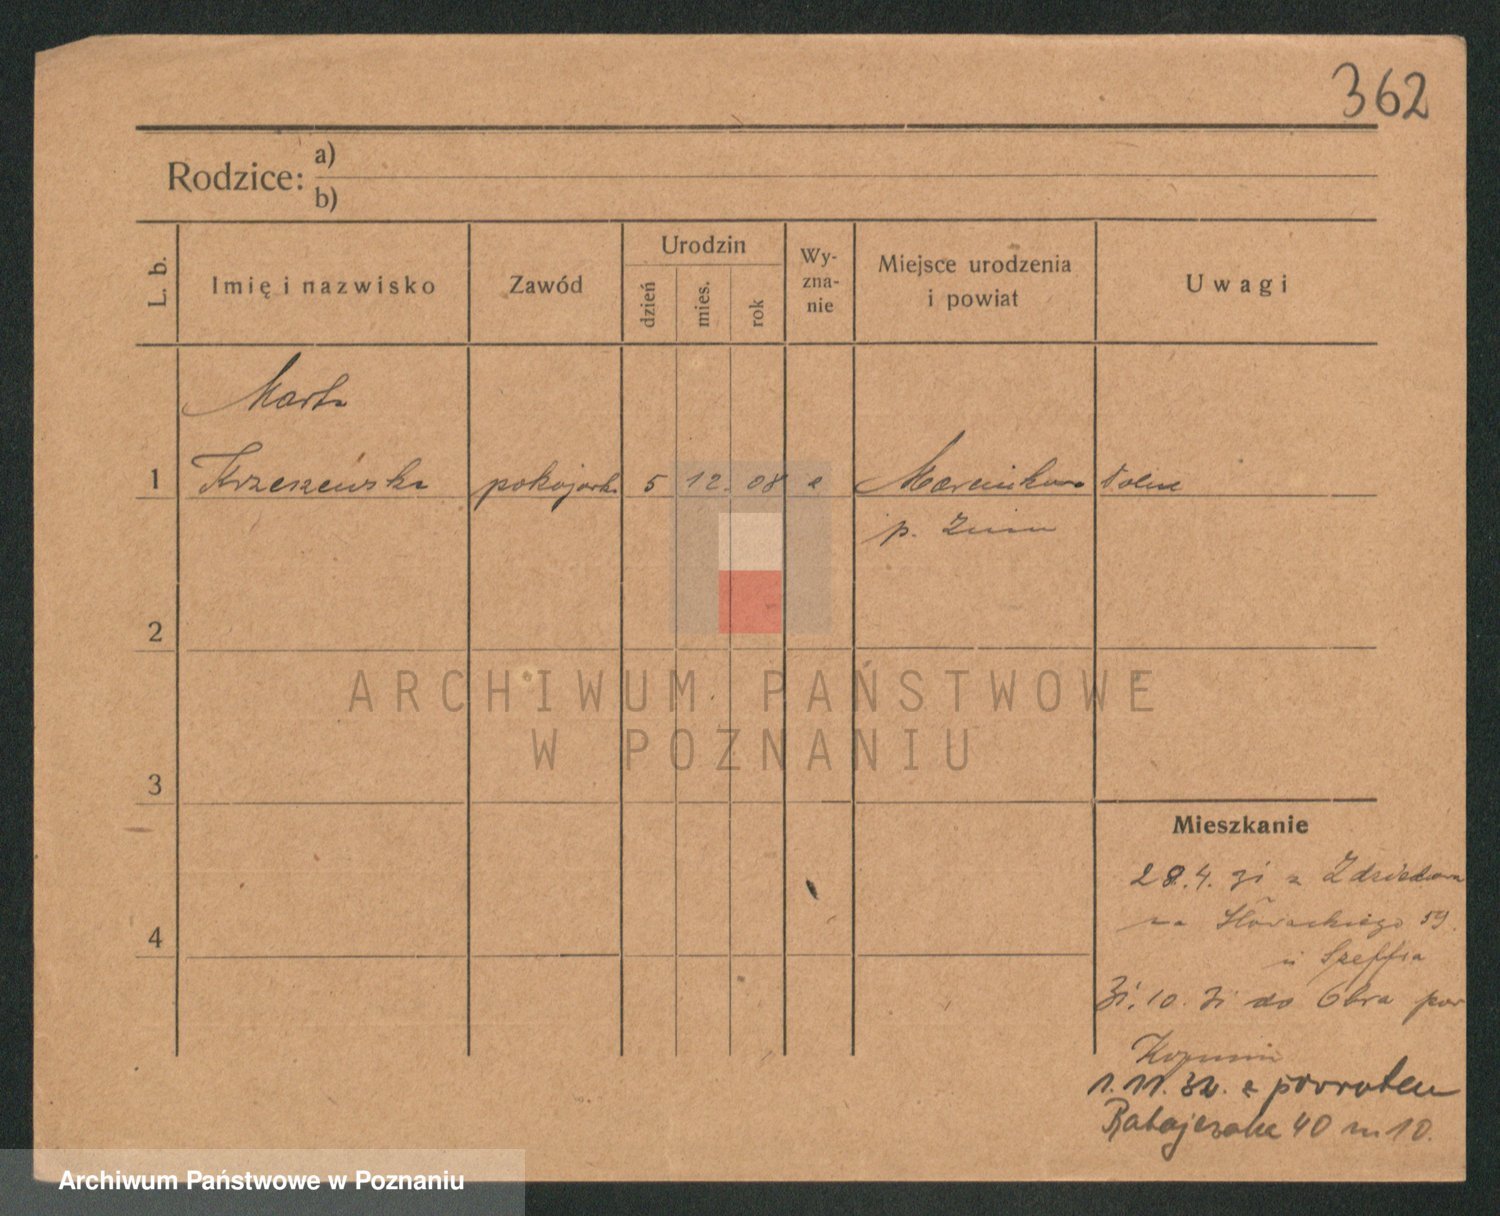 362
Rodzice: a)
b)
L. b.
Imię i nazwisko
Zawód
Urodzin
dzień
mies.
rok
Wy-
zna-
nie
Miejsce urodzenia
i powiat
Uwagi
Marta
1 pokojowa 5 12. 08 Polsk
p. Żnin
2
ARCHIWUM PAŃSTWOWE
W POZNANIU
3
4
Mieszkanie
28.4. 31 z
na Słowackiego 59.
u
31. 10. 31 do Obra pow
1.11.32. z powrotem
Ratajczaka 40 m 10.
Archiwum Państwowe w Poznaniu